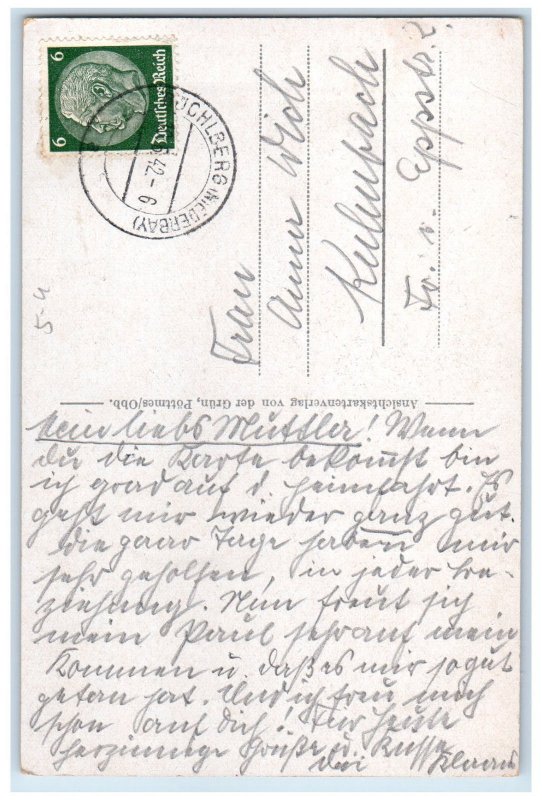 6 Deutsches Reich 6
BÜCHLBERG (NIEDERBAY)
42 - 6
Frau
Anna
Kulmbach
Fr. v. Eppstr. 2
5-4
Ansichtskartenverlag von der Grün, Pöttmes/Obb.
Mein liebs Muttler! Wenn
du die Karte bekommst bin
ich grad auf d. Heimfahrt. Es
geht mir wieder ganz gut.
Die paar Tage haben mir
sehr geholfen, in jeder Be-
ziehung. Nun freut sich
mein Paul sehr auf mein
Kommen u. daß es mir so gut
getan hat. Und ich freu mich
schon auf dich! Für heute
herzinnige Grüße u. Küsse